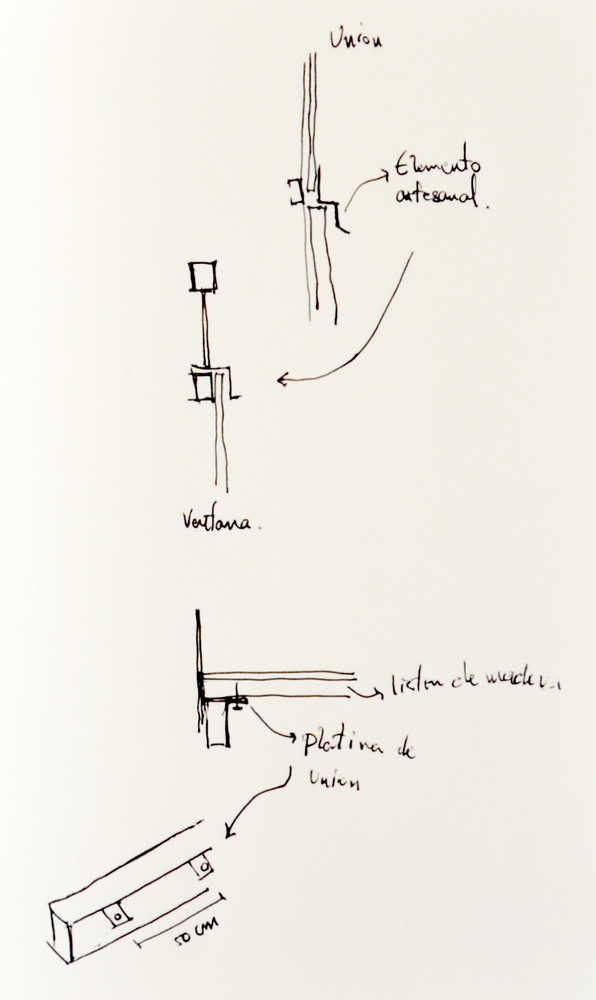 Union
Elemento
artesanal.
Ventana.
liston de madera
platina de
union
50 cm